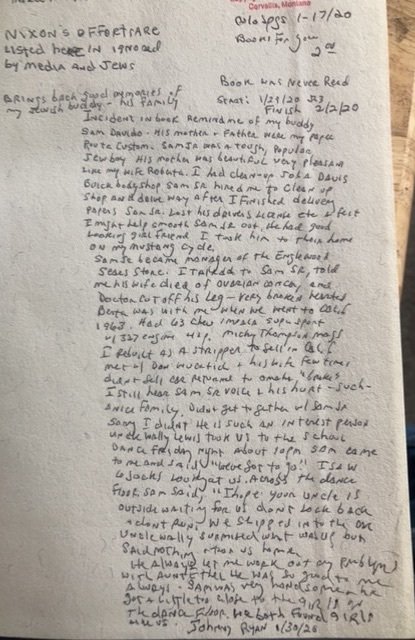 Corvallis, Montana
Colo Spgs 1-17/20
NIXON'S EFFORT ARE
Books For You
LISTED HERE IN IGNORED
2 00
by MEDIA AND JEWS
Book was Never Read
BRINGS back good memories of
START: 1/29/20
my Jewish buddy - his FAMILY
FINISH 2/2/20
INCIDENT IN book Remind me of my buddy
SAM Davido. His mother + FATHER were my paper
Route Custom. SAM JR WAS A tough, Popular,
Jewboy. His mother was beautiful very pleasant
Like my wife Roberta. I had clean-up John DAVIS
Buick bodyshop SAM SR hired me to Clean up
Shop AND drive way AFTER I Finished delivery
Papers SAM SR. Lost his drivers license etc & felt
I might help smooth SAM JR out. He had good
looking girl friend I took him to their home
ON my MUSTANG Cycle.
SAM SR became manager of the Englewood
Sears Store. I talked to SAM SR, told
me his wife died of OVARIAN CANCER, AND
Doctor Cut off his Leg - Very broken hearted
Berta was with me when we went to CALIF
1968. Had 63 Chev Impala Super Sport
w/ 327 engine 4sp. Micky Thompson mags
I Rebuilt AS A STRIPPER to Sell IN CALIF.
met w/ Don + his wife Few times
didnt Sell CAR Returned to Omaha "broke"
I still hear SAM SR VOICE & his hurt - Such
A Nice family. Didnt get together w/ SAM SR
Sorry I didnt He is such AN Interest person
Uncle Wally Lewis took us to the School
DANCE FRIDAY Night About 10pm SAM came
to me and said "We've got to go" I saw
6 Jocks Look at us. Across the dance
Floor, SAM SAID, "I hope your uncle is
outside waiting for us dont look back
+ dont RUN. We slipped into the car
Uncle Wally surmised what was up but
SAID Nothing + Ran us home.
He Always let me work out my problems
with AUNT Ethel He was so good to me
Always - SAM was very handsome & he
got a little to close to the girls on
the dance Floor. We both Found girls
Johnny RYAN 1/30/20